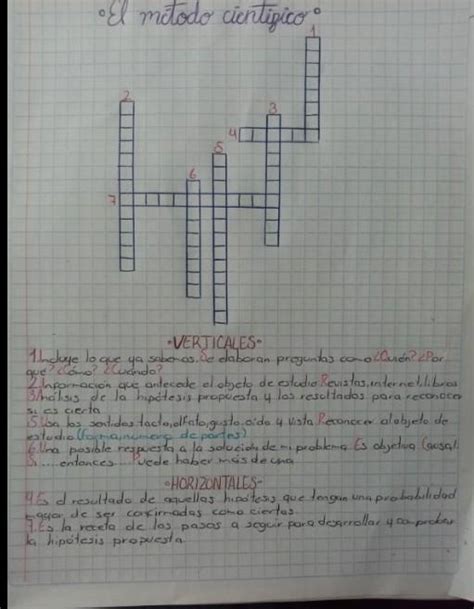 °El método científico°
1
2
3
4
5
6
7
•VERTICALES•
1.Incluye lo que ya sabemos. Se elaboran preguntas como ¿Quién? ¿Por
que? ¿Cómo? ¿Cuándo?
2.Información que antecede el objeto de estudio Revistas, internet, libros
3.Análisis de la hipótesis propuesta y los resultados para reconocer
si es cierta
5.Usa los sentidos tacto, olfato, gusto, oído y vista. Reconocer al objeto de
estudio (forma, numero de partes)
6.Una posible respuesta a la solución de mi problema. Es objetiva (causal
Si .... entonces .... Puede haber más de una
•HORIZONTALES•
4.Es el resultado de aquellas hipótesis que tengan una probabilidad
mayor de ser confirmadas como ciertas.
7.Es la receta de los pasos a seguir para desarrollar y comprobar
la hipótesis propuesta.